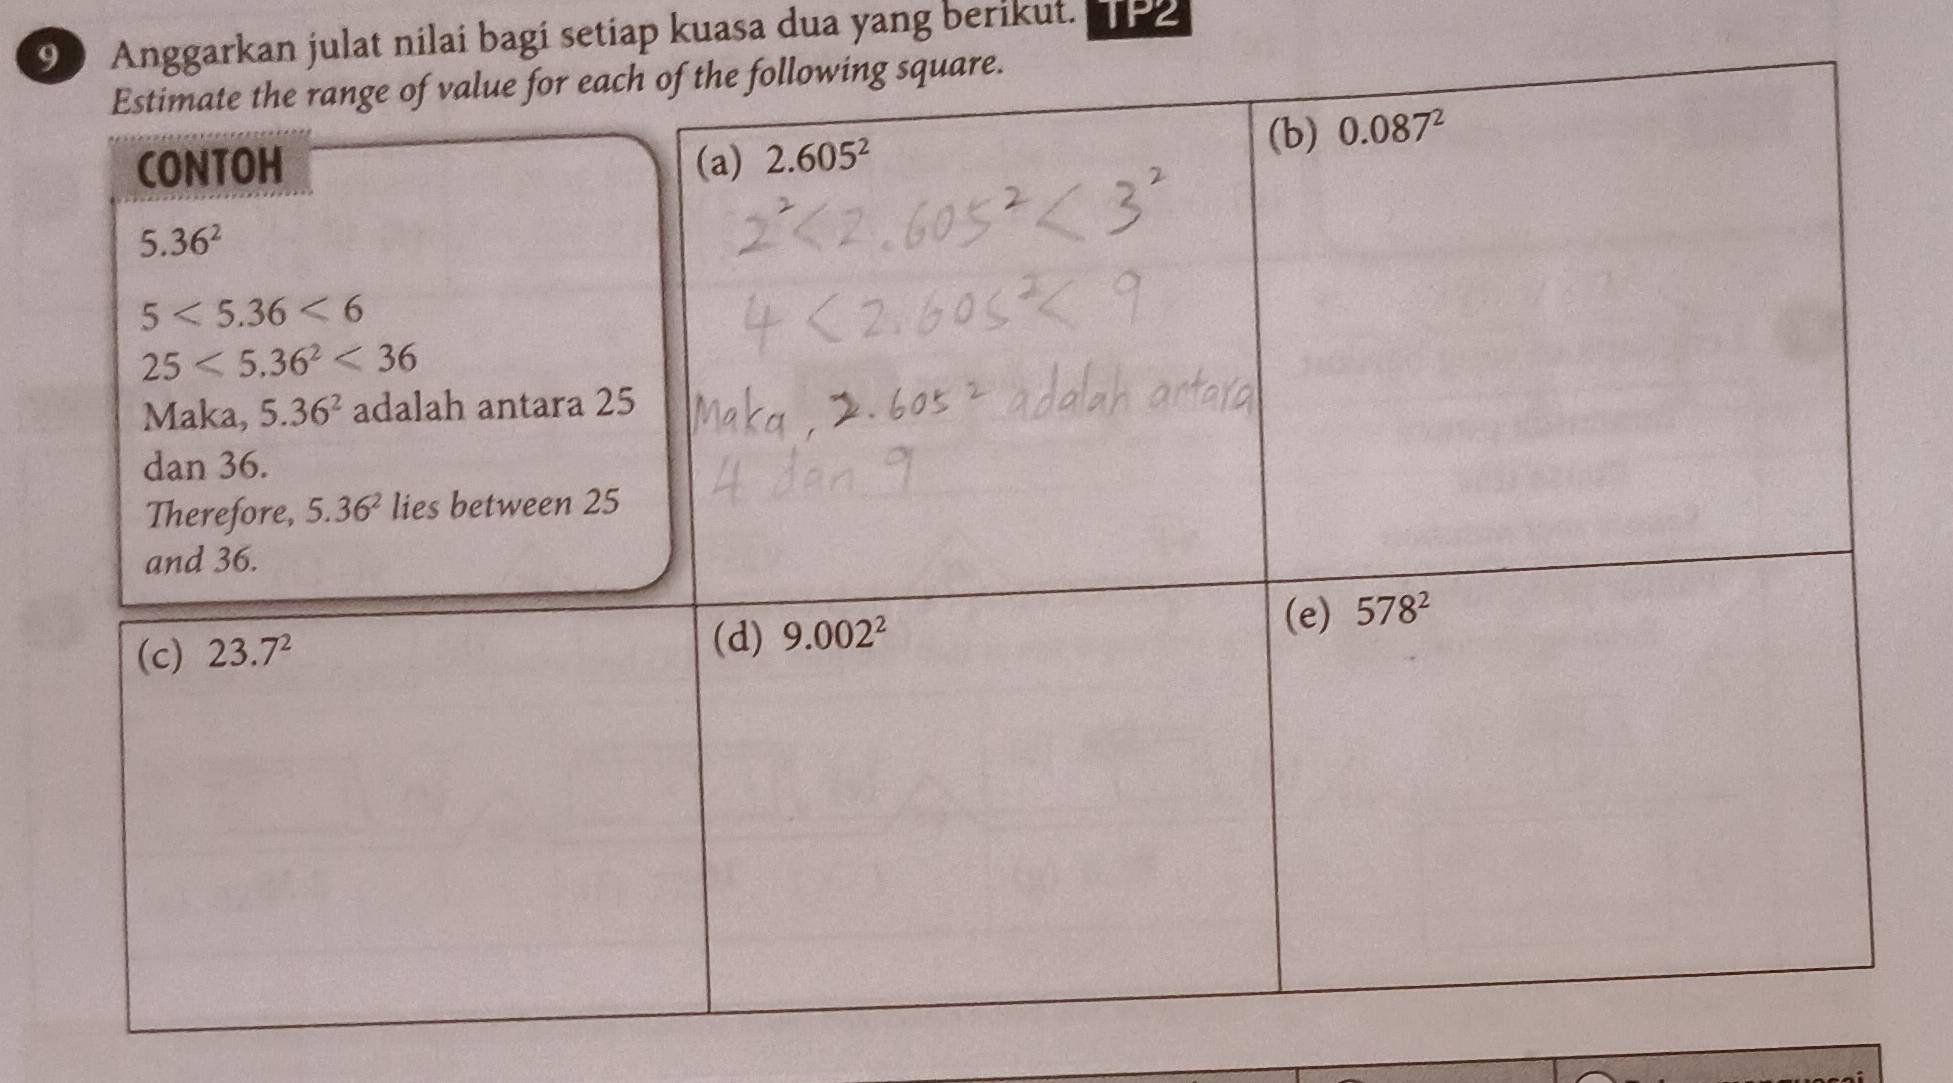 9 Anggarkan julat nilai bagi setiap kuasa dua yang berikut. TP2
Estimate the range of value for each of the following square.
CONTOH
5.36²
5 < 5.36 < 6
25 < 5.36² < 36
Maka, 5.36² adalah antara 25
dan 36.
Therefore, 5.36² lies between 25
and 36.
(a) 2.605²
2² < 2.605² < 3²
4 < 2.605² < 9
Maka, 2.605² adalah antara
4 dan 9
(b) 0.087²
(c) 23.7²
(d) 9.002²
(e) 578²